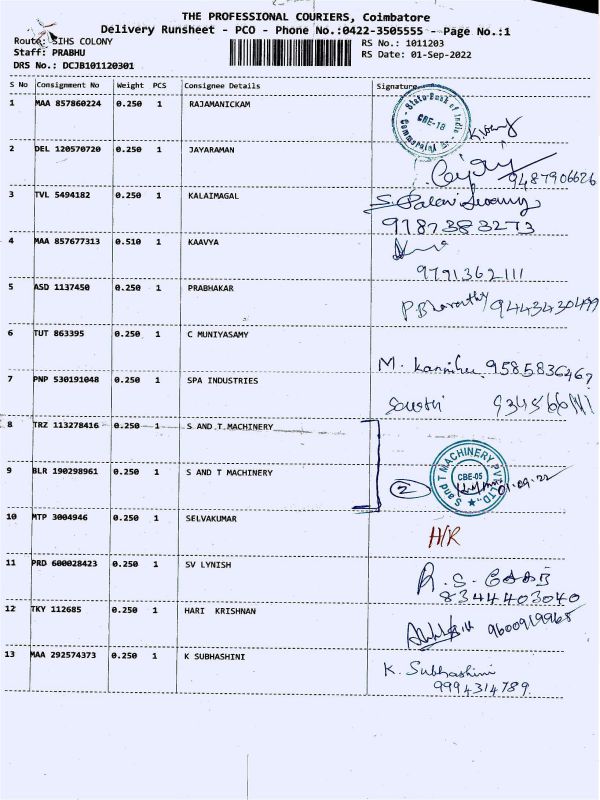 THE PROFESSIONAL COURIERS, Coimbatore
Delivery Runsheet - PCO - Phone No.:0422-3505555 - Page No.:1
Route: SIHS COLONY
RS No.: 1011203
Staff: PRABHU
RS Date: 01-Sep-2022
DRS No.: DCJB101120301
S No Consignment No Weight PCS Consignee Details Signature
1 MAA 857860224 0.250 1 RAJAMANICKAM
State Bank of India
CBE-18
2 DEL 120570720 0.250 1 JAYARAMAN
9487906626
3 TVL 5494182 0.250 1 KALAIMAGAL
S. Palani
9787383273
4 MAA 857677313 0.510 1 KAAVYA
9791362111
5 ASD 1137450 0.250 1 PRABHAKAR
P. Bharathy 9443430499
6 TUT 863395 0.250 1 C MUNIYASAMY
M. 9585836467
7 PNP 530191048 0.250 1 SPA INDUSTRIES
8 TRZ 113278416 0.250 1 S AND T MACHINERY
S and T MACHINERY PVT LTD.,
CBE-05
2 01.09.22
9 BLR 190298961 0.250 1 S AND T MACHINERY
10 MTP 3004946 0.250 1 SELVAKUMAR
H/R
11 PRD 600028423 0.250 1 SV LYNISH
R. S.
8344403040
12 TKY 112685 0.250 1 HARI KRISHNAN
9600919968
13 MAA 292574373 0.250 1 K SUBHASHINI
K. Subhashini
9994314789